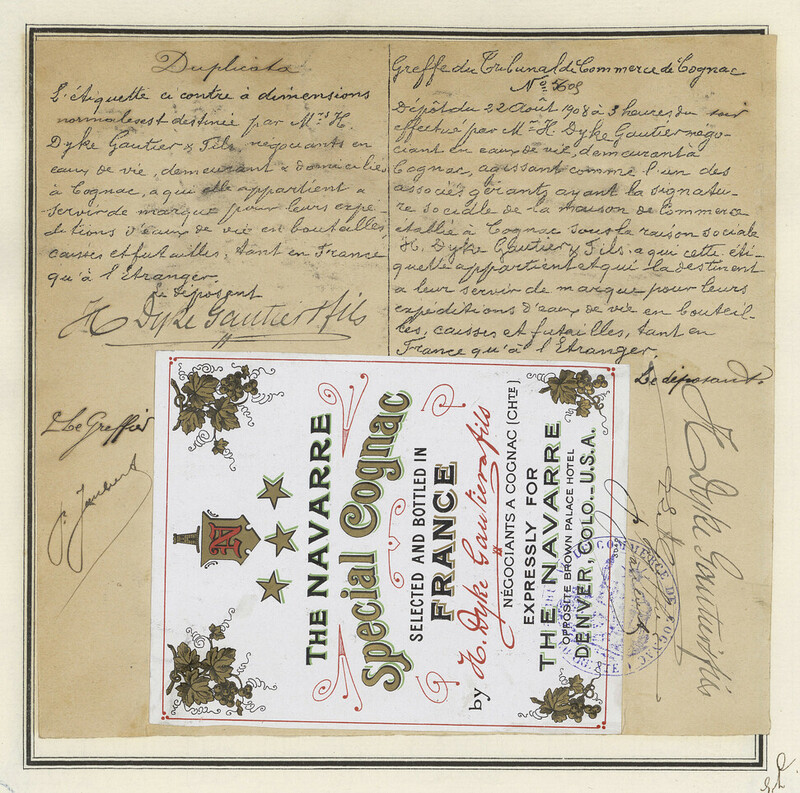 Duplicata
L'étiquette ci contre à dimensions
normales est destinée par Mrs H.
Dyke Gautier & Fils, négociants en
eaux de vie, demeurant & domiciliés
à Cognac, a qui elle appartient a
servir de marque pour leurs expé-
ditions d'eaux de vie en bouteilles,
caisses et futailles, tant en France
qu'à l'Etranger.
Le déposant
H Dyke Gautier & fils
Le Greffier
Greffe du Tribunal de Commerce de Cognac
Dépôt du 22 Août 1908 à 3 heures du soir
effectué par Mr H. Dyke Gautier négo-
ciant en eaux de vie, demeurant à
Cognac, agissant comme l'un des
associés gérants, ayant la signatu-
re sociale de la maison de Commerce
établie à Cognac sous la raison sociale
H. Dyke Gautier & Fils, a qui cette éti-
quette appartient et qui la destinent
a leur servir de marque pour leurs
expéditions d'eaux de vie en bouteil-
les, caisses et futailles, tant en
France qu'à l'Etranger.
Le déposant.
H Dyke Gautier & fils
N
THE NAVARRE
Special Cognac
SELECTED AND BOTTLED IN
FRANCE
by H. Dyke Gautier & fils
NÉGOCIANTS A COGNAC (CHTE)
EXPRESSLY FOR
THE NAVARRE
OPPOSITE BROWN PALACE HOTEL
DENVER, COLO. U.S.A.
COMMERCE DE COGNAC